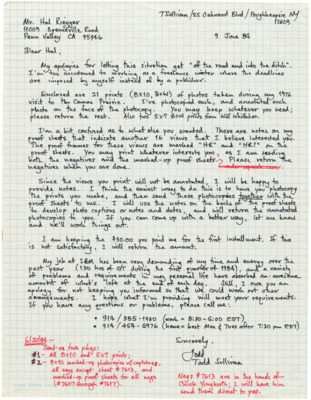 TSullivan/25 Oakwood Blvd/Poughkeepsie, NY
12603
Mr. Hal Riegger
11009 Brownsville Road
Penn Valley CA 95946
9 June 84
Dear Hal,
My apologies for letting this situation get "off the road and into the ditch".
I'm too accustomed to working as a freelance writer where the deadlines
are imposed by myself instead of by a publisher.
Enclosed are 21 pieces (8x10, B&W) of photos taken during my 1976
visit to the Camas Prairie. I've photocopied each, and annotated each
photo on the face of the photocopy. You may keep whatever you need;
please return the rest. Also two 5x7 B&W prints from Will Whittaker.
I'm a bit confused as to what else you wanted. There are notes on my
proof sheets that indicate another 16 views that I believe interested you.
The proof frames for these views are marked "HR" and "HR?" on the
proof sheets. You may print whatever interests you, as I am sending
both the negatives and the marked-up proof sheets. Please return the
negatives when you are done.
Since the views you print will not be annotated, I will be happy to
provide notes. I think the easiest way to do this is to have you photocopy
the prints you make, and then send these photocopies together with the
proof sheets to me. I will use the notes on the backs of the proof sheets
to develop photo captions or notes and dates, and will return the annotated
photocopies to you. If you can come up with a better way, let me know
and we'll work things out.
I am keeping the $30.00 you paid me for the first installment. If this
is not satisfactory, I will return the amount.
My job at IBM has been very demanding of my time and energy over the
past year (136 hrs of OT during the first quarter of 1984), and a variety
of problems and requirements in my personal life have absorbed an overtime
amount of what's left at the end of each day. Still, I owe you an
apology for not keeping you informed so that we could work out other
arrangements. I hope what I'm providing will meet your requirements.
If you have any questions or problems, please call me:
• 914/385-1980 (work - 8:30-5:00 EDT)
• 914/454-6976 (home - best Mon & Tues after 7:30 pm EDT)
Sincerely,
Todd
Todd Sullivan
6/20/84 -
Sent as two pkgs:
#1 - All 8x10 and 5x7 prints;
#2 - 8x10 marked-up photocopies of captures,
all negs except sheet #7613, and
marked-up proof sheets for all negs
(#7607 through #7617).
Negs #7613 are in the hands of
; I will have him
send them direct to you.